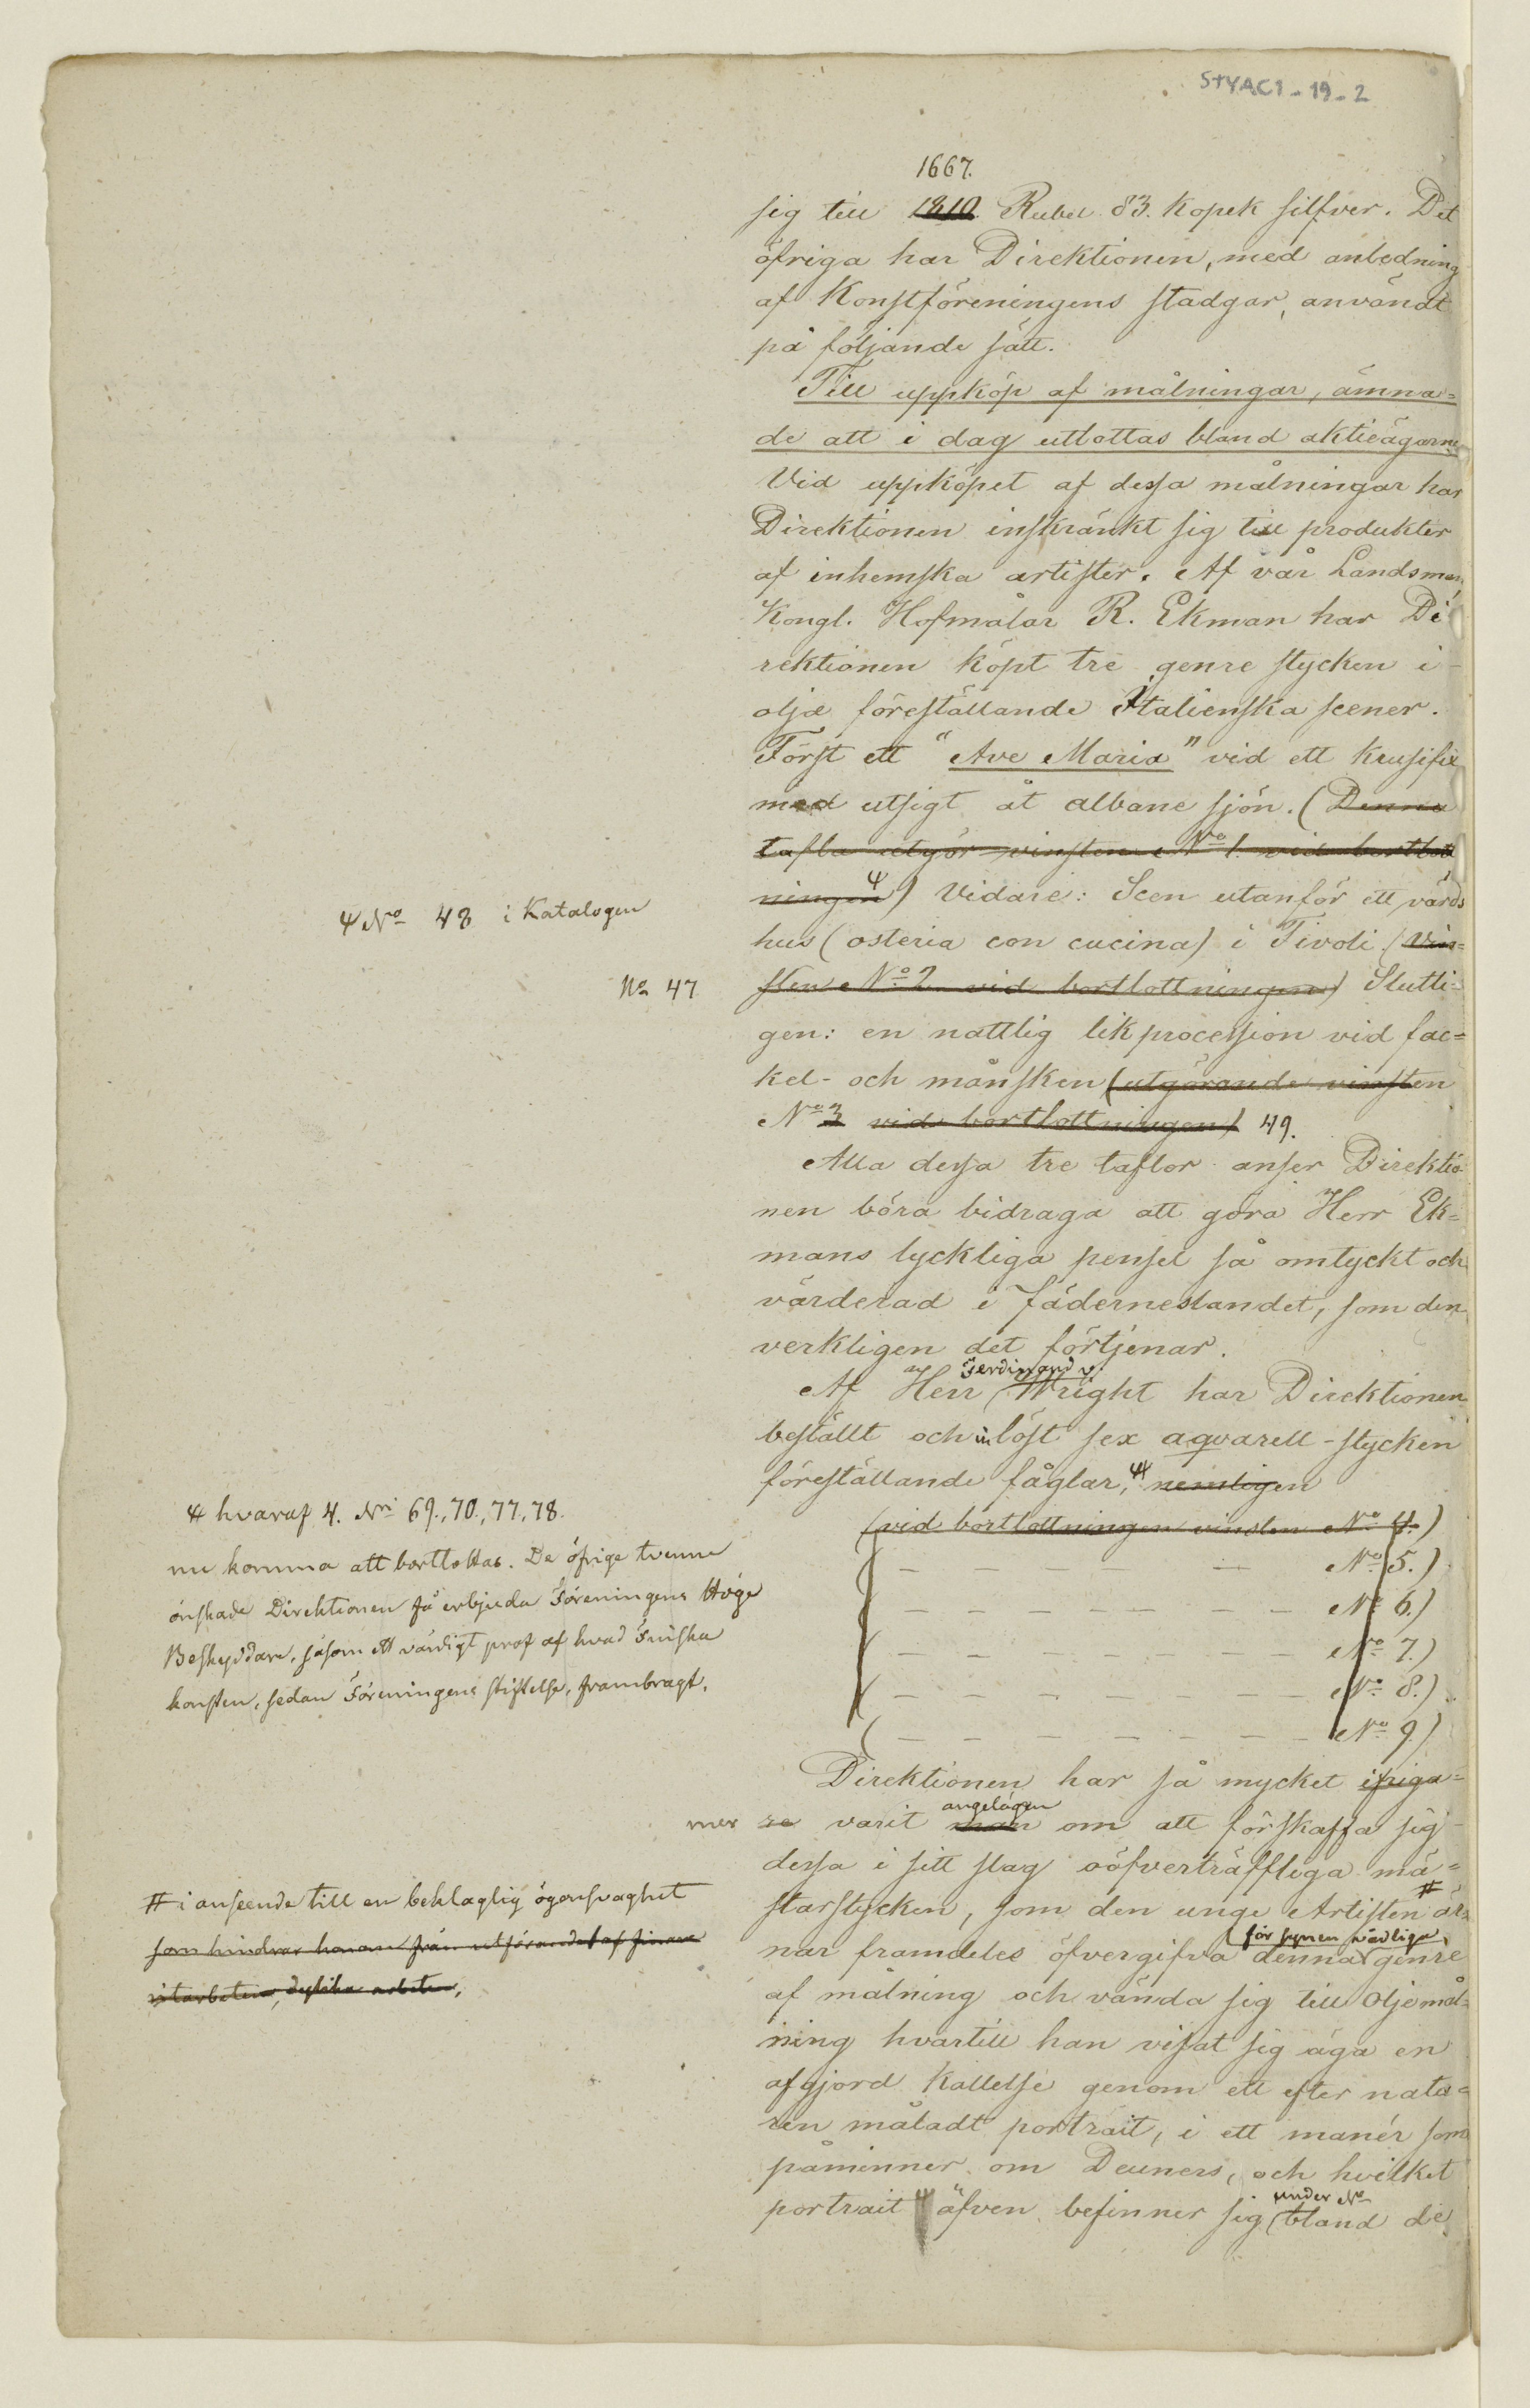 STYAC1-19-2
1667.
sig till 1810 Rubel 83. Kopek silfver. Det
öfriga har Direktionen, med anledning
af Konstföreningens stadgar, användt
på följande sätt.
Till uppköp af målningar, ämna=
de att i dag utlottas bland aktieägarne.
Vid uppköpet af dessa målningar har
Direktionen inskränkt sig till produkter
af inhemska artister. Af vår Landsman,
Kongl. Hofmålar R. Ekman har Di
rektionen köpt tre genre stycken i
olja föreställande Italienska scener.
Först ett "Ave Maria" vid ett krusifix
med utsigt åt albane sjön. (Denna
tafla utgör vinsten No 1. vid bortlott
ningen Ψ) Vidare: Scen utanför ett värds
Ψ No 48 i Katalogen
hus (osteria con cucina) i Tivoli (Vin=
No 47
sten No 2 vid bortlottningen) Slutli=
gen: en nattlig lik procession vid fac=
kel- och månsken (utgörande vinsten
No 3 vid bortlottningen) 49.
Alla dessa tre taflor anser Direktio
nen böra bidraga att göra Herr Ek=
mans lyckliga pensel så omtyckt och
värderad i fäderneslandet, som den
verkligen det förtjenar.
Ferdinand v.
Af Herr Wright har Direktionen
beställt och inlöst sex aqvarell-stycken
föreställande fåglar, # nemligen
# hvaraf 4. Nri 69., 70., 77., 78.
nu komma att bortlottas. De öfrige tvenne
önskade Direktionen få erbjuda Föreningens Höge
Beskyddare, såsom ett värdigt prof af hvad Finska
konsten, sedan Föreningens stiftelse, frambragt.
(vid bortlottningen vinsten No 4.)
( — — — — — No 5.)
( — — — — — — No 6.)
( — — — — — — No 7.)
( — — — — — — No 8.)
( — — — — — — No 9)
Direktionen har så mycket ifriga=
mer re varit angelägen man om att förskaffa sig
dessa i sitt slag oöfverträffliga mä=
starstycken, som den unge Artisten # är
# i anseende till en beklaglig ögonsvaghet
som hindrar honom från utförandet af finare
ritarbeten, dylika arbeten,
för synen vådliga
nar framdeles öfvergifva denna genre
af målning och vända sig till Oljemål=
ning hvartill han visat sig äga en
afgjord Kallelse genom ett efter natu=
ren måladt portrait, i ett manér som
påminner om Deuners, och hvilket
under No
portrait äfven befinner sig (bland de